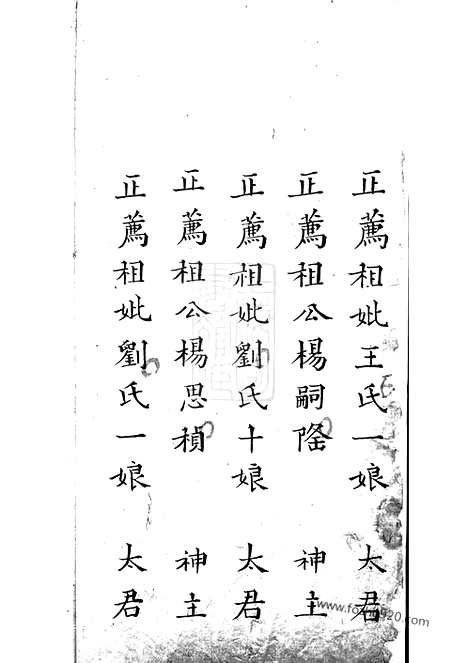 正薦祖妣王氏一娘 太君
正薦祖公楊嗣隆 神主
正薦祖妣劉氏十娘 太君
正薦祖公楊思楨 神主
正薦祖妣劉氏一娘 太君